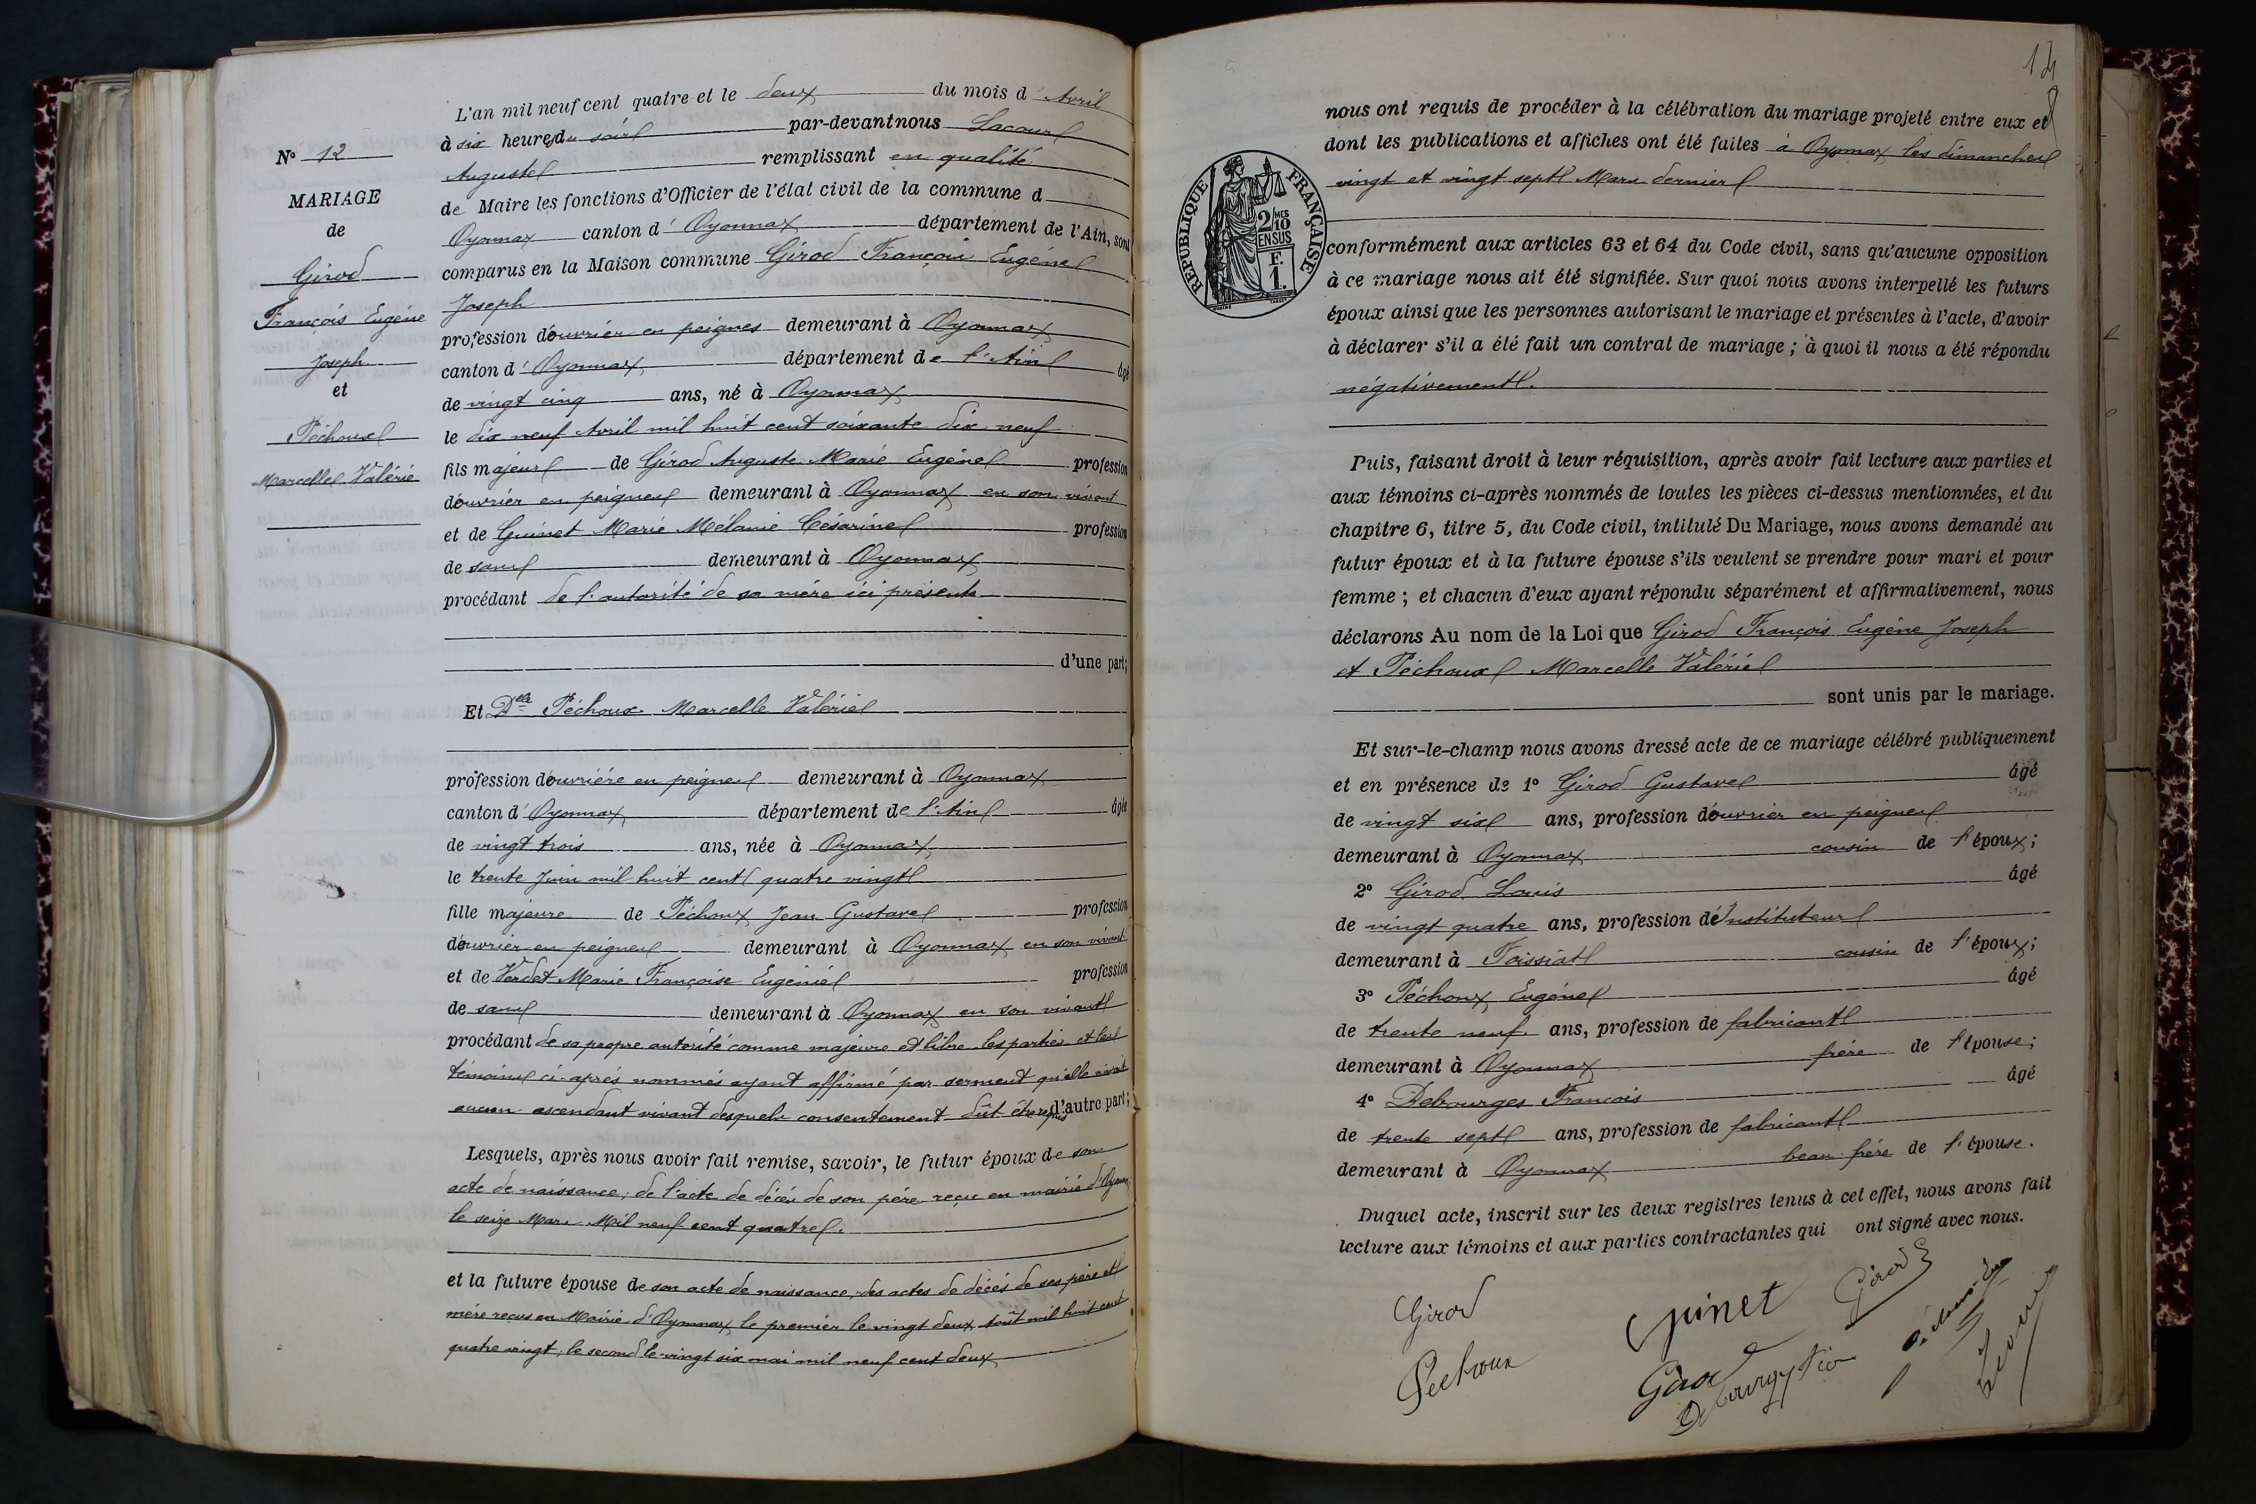 L'an mil neuf cent quatre et le deux du mois d'Avril
à six heures du soir par-devant nous Lacour
Auguste remplissant en qualité
de Maire les fonctions d'Officier de l'état civil de la commune d
Oyonnax canton d'Oyonnax département de l'Ain, sont
comparus en la Maison commune Girod François Eugène
Joseph
profession d'ouvrier en peignes demeurant à Oyonnax
canton d'Oyonnax département de l'Ain âgé
de vingt cinq ans, né à Oyonnax
le dix neuf Avril mil huit cent soixante dix neuf
fils majeur de Girod Auguste Marie Eugène profession
d'ouvrier en peignes demeurant à Oyonnax en son vivant
et de Guinet Marie Mélanie Césarine profession
de sans demeurant à Oyonnax
procédant de l'autorité de sa mère ici présente
d'une part;
Et Delle Péchoux Marcelle Valérie
profession d'ouvrière en peignes demeurant à Oyonnax
canton d'Oyonnax département de l'Ain âgée
de vingt trois ans, née à Oyonnax
le trente Juin mil huit cent quatre vingt
fille majeure de Péchoux Jean Gustave profession
d'ouvrier en peignes demeurant à Oyonnax en son vivant
et de Verdet Marie Françoise Eugénie profession
de sans demeurant à Oyonnax en son vivant
procédant de sa propre autorité comme majeure et libre les parties et les
témoins ci-après nommés ayant affirmé par serment qu'elle n'avait
aucun ascendant vivant desquels consentement dût être requis d'autre part;
Lesquels, après nous avoir fait remise, savoir, le futur époux de son
acte de naissance; de l'acte de décès de son père reçu en mairie d'Oyonnax
le seize Mars Mil neuf cent quatre.
et la future épouse de son acte de naissance, des actes de décès de ses père et
mère reçus en Mairie d'Oyonnax le premier le vingt deux Août mil huit cent
quatre vingt, le second le vingt six mai mil neuf cent deux
N° 12
MARIAGE
de
Girod
François Eugène
Joseph
et
Péchoux
Marcelle Valérie
14
nous ont requis de procéder à la célébration du mariage projeté entre eux et
dont les publications et affiches ont été faites à Oyonnax les dimanches
vingt et vingt sept Mars dernier
RÉPUBLIQUE FRANÇAISE
2/10 MES
EN SUS
F.
1.
conformément aux articles 63 et 64 du Code civil, sans qu'aucune opposition
à ce mariage nous ait été signifiée. Sur quoi nous avons interpellé les futurs
époux ainsi que les personnes autorisant le mariage et présentes à l'acte, d'avoir
à déclarer s'il a été fait un contrat de mariage; à quoi il nous a été répondu
négativement.
Puis, faisant droit à leur réquisition, après avoir fait lecture aux parties et
aux témoins ci-après nommés de toutes les pièces ci-dessus mentionnées, et du
chapitre 6, titre 5, du Code civil, intitulé Du Mariage, nous avons demandé au
futur époux et à la future épouse s'ils veulent se prendre pour mari et pour
femme; et chacun d'eux ayant répondu séparément et affirmativement, nous
déclarons Au nom de la Loi que Girod François Eugène Joseph
et Péchoux Marcelle Valérie
sont unis par le mariage.
Et sur-le-champ nous avons dressé acte de ce mariage célébré publiquement
et en présence de 1° Girod Gustave âgé
de vingt six ans, profession d'ouvrier en peignes
demeurant à Oyonnax cousin de l'époux;
2° Girod Louis âgé
de vingt quatre ans, profession d'Instituteur
demeurant à Foissiat cousin de l'époux;
3° Péchoux Eugène âgé
de trente neuf ans, profession de fabricant
demeurant à Oyonnax frère de l'épouse;
4° Debourges François âgé
de trente sept ans, profession de fabricant
demeurant à Oyonnax beau frère de l'épouse.
Duquel acte, inscrit sur les deux registres tenus à cet effet, nous avons fait
lecture aux témoins et aux parties contractantes qui ont signé avec nous.
Girod Guinet Girod
Pechoux Girod